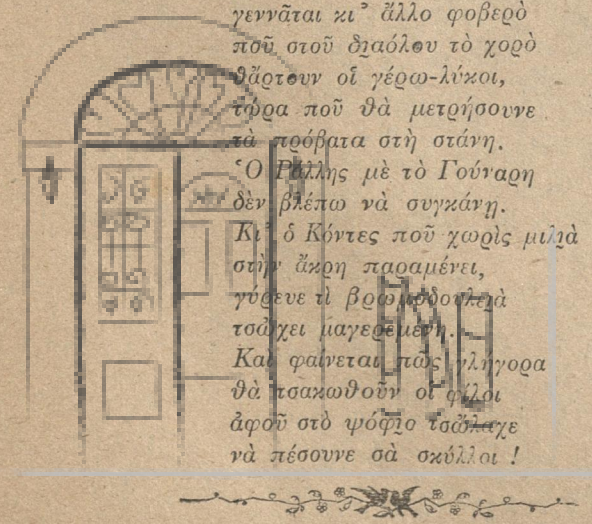 γεννᾶται κι᾿ ἄλλο φοβερὸ
ποῦ στοῦ διαόλου τὸ χορὸ
θἄρτουν οἱ γέρω-λύκοι,
τώρα ποῦ θὰ μετρήσουνε
τὰ πρόβατα στὴ στάνη.
Ὁ Ράλλης μὲ τὸ Γούναρη
δὲν βλέπω νὰ συγκάνῃ.
Κι᾿ ὁ Κόντες ποῦ χωρὶς μιλιὰ
στὴν ἄκρη παραμένει,
γύρευε τὶ βρωμοδουλειὰ
τσἄχει μαγερεμένη.
Καὶ φαίνεται πῶς γλήγορα
θὰ τσακωθοῦν οἱ φίλοι
ἀφοῦ στὸ ψόφιο τσἄλαχε
νὰ πέσουνε σὰ σκύλλοι !